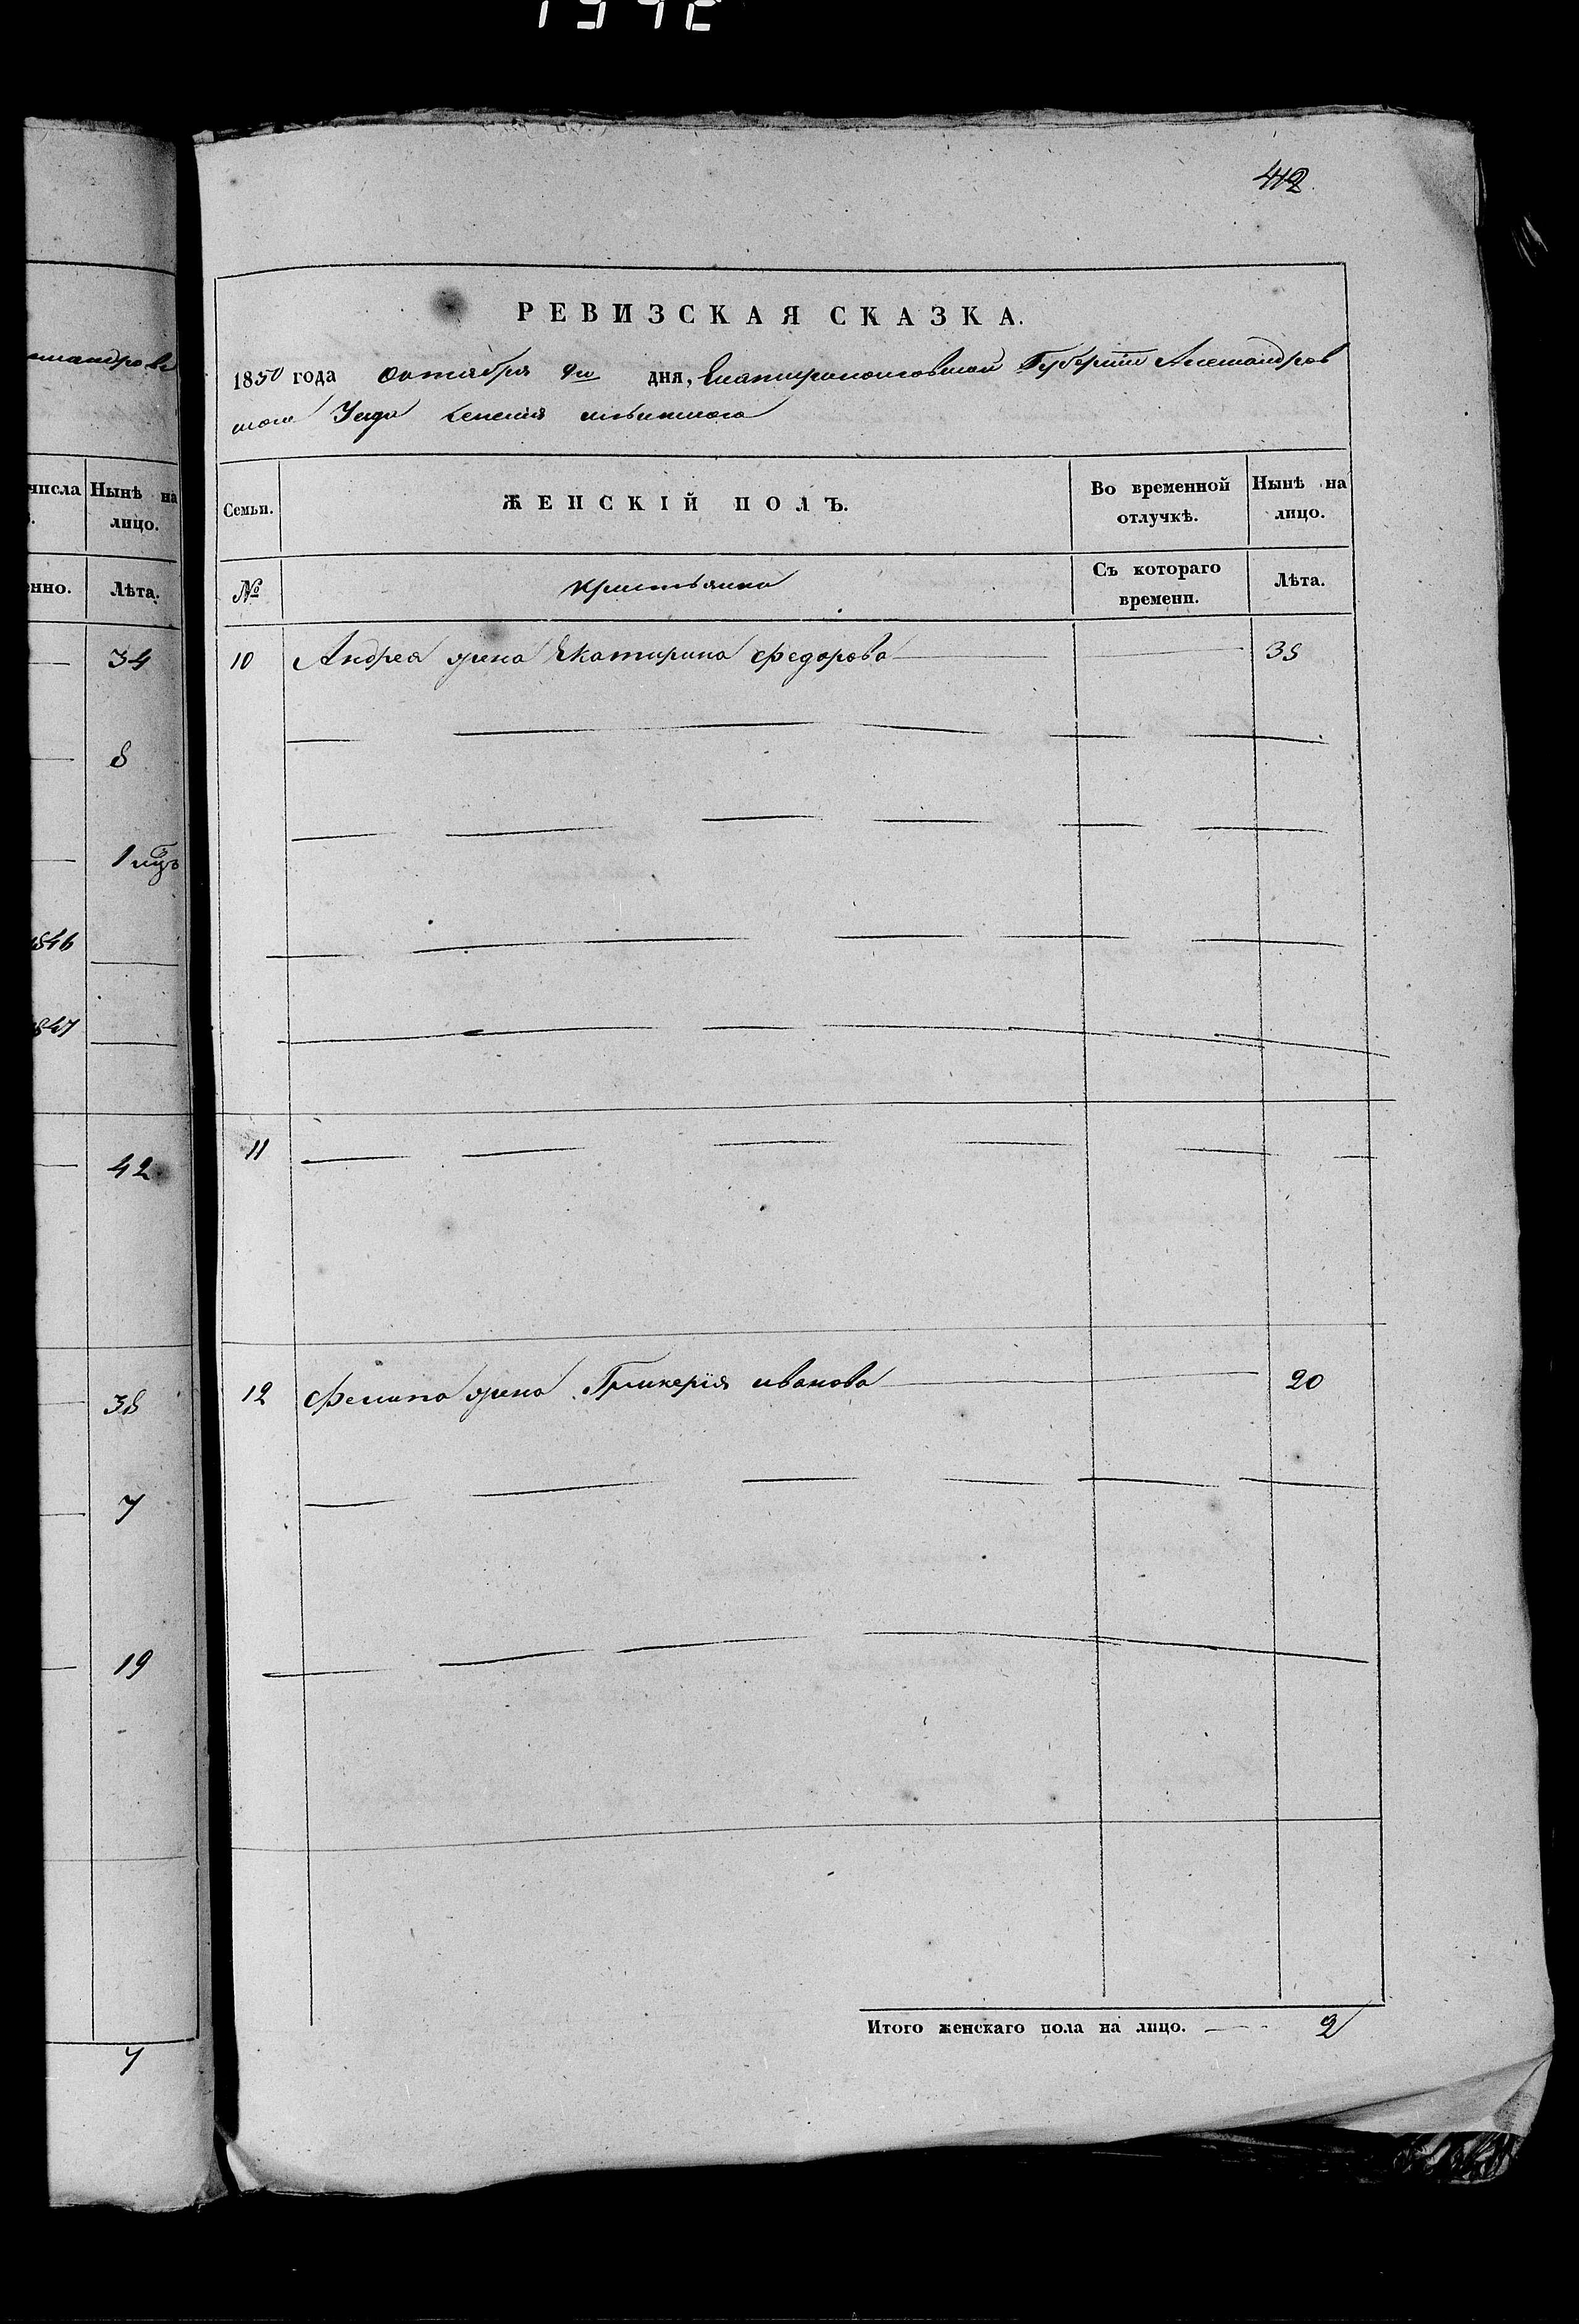 412
РЕВИЗСКАЯ СКАЗКА.
1850 года Октября дня, Екатеринославской Губернии Александров
ского Уезда Селения
числа Нынѣ на лицо.
Семьи. ЖЕНСКІЙ ПОЛЪ. Во временной отлучкѣ. Нынѣ на лицо.
Лѣта.
№ Съ котораго времени. Лѣта.
34
10 Андрея жена Екатирина Федорова
8
1846
1847
11
42
12 жена Гликерія иванова 20
38
7
19
Итого женскаго пола на лицо. 2
7